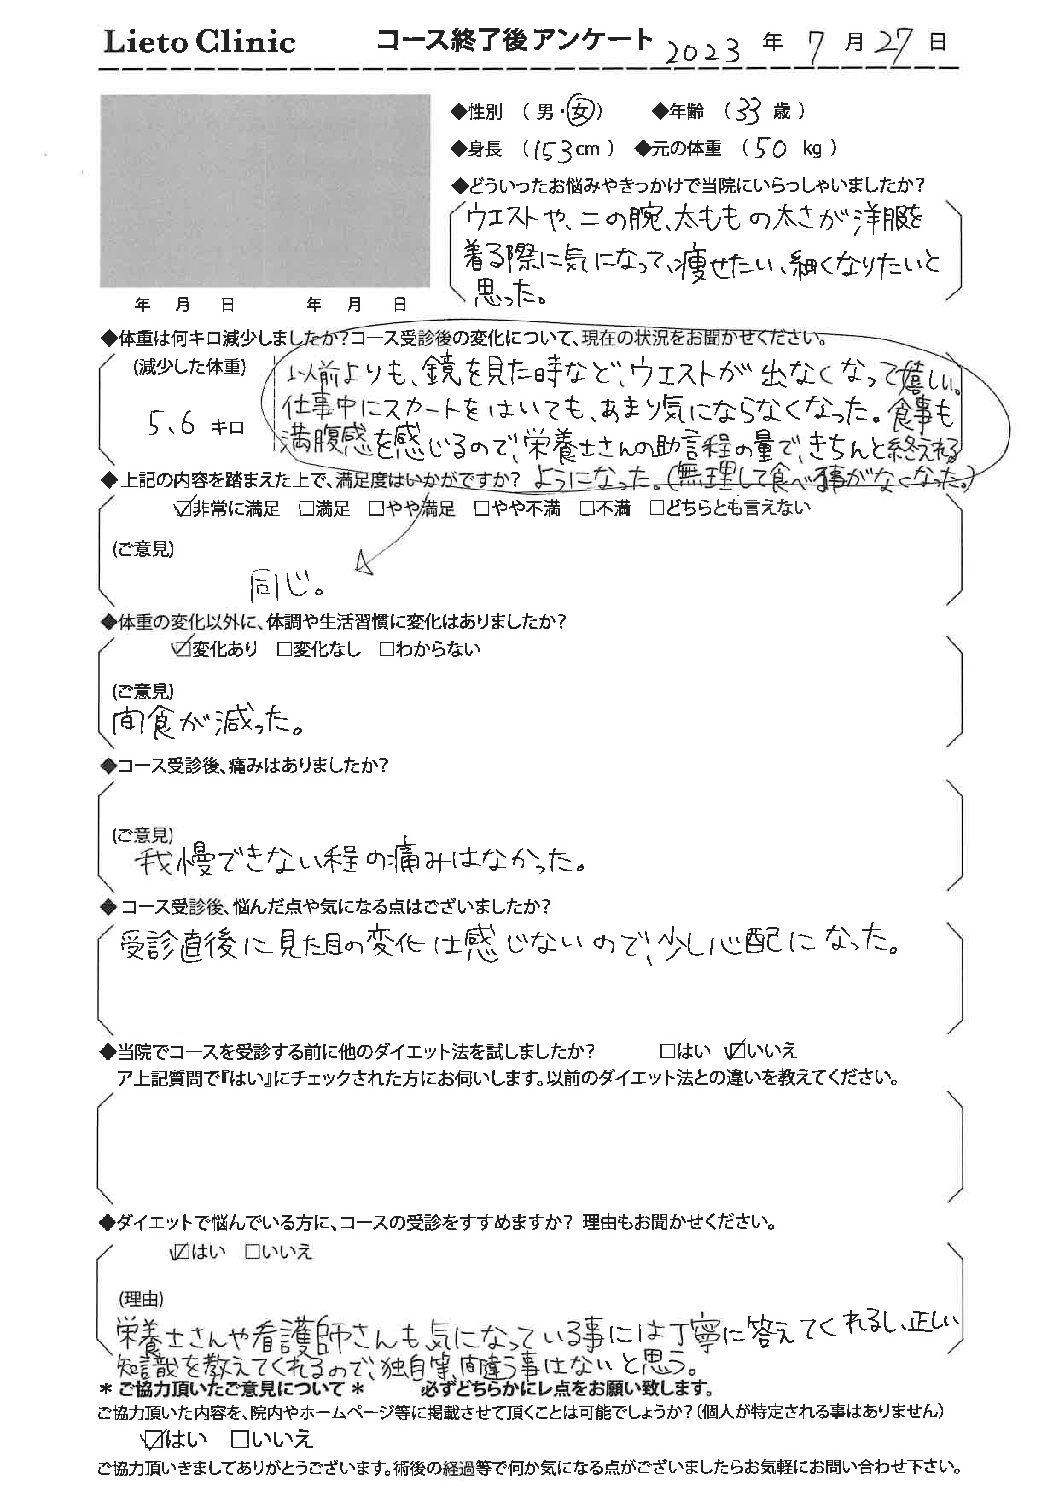 Lieto Clinic コース終了後アンケート 2023 年 7 月 27 日
◆性別 （ 男・女） ◆年齢 （ 33 歳 ）
◆身長 （153cm ） ◆元の体重 （ 50 kg ）
◆どういったお悩みやきっかけで当院にいらっしゃいましたか？
ウエストや、二の腕、太ももの太さが洋服を
着る際に気になって、痩せたい、細くなりたいと
思った。
年 月 日 年 月 日
◆体重は何キロ減少しましたか？コース受診後の変化について、現在の状況をお聞かせください。
（減少した体重）
5.6 キロ
以前よりも、鏡を見た時など、ウエストが出なくなって嬉しい。
仕事中にスカートをはいても、あまり気にならなくなった。食事も
満腹感を感じるので、栄養士さんの助言程の量で、きちんと終えれる
ようになった。(無理して食べる事がなくなった。)
◆上記の内容を踏まえた上で、満足度はいかがですか？
☑非常に満足 □満足 □やや満足 □やや不満 □不満 □どちらとも言えない
（ご意見）
同じ。
◆体重の変化以外に、体調や生活習慣に変化はありましたか？
☑変化あり □変化なし □わからない
（ご意見）
間食が減った。
◆コース受診後、痛みはありましたか？
（ご意見）
我慢できない程の痛みはなかった。
◆コース受診後、悩んだ点や気になる点はございましたか？
受診直後に見た目の変化は感じないので、少し心配になった。
◆当院でコースを受診する前に他のダイエット法を試しましたか？ □はい ☑いいえ
ア上記質問で『はい』にチェックされた方にお伺いします。以前のダイエット法との違いを教えてください。
◆ダイエットで悩んでいる方に、コースの受診をすすめますか？ 理由もお聞かせください。
☑はい □いいえ
（理由）
栄養士さんや看護師さんも気になっている事には丁寧に答えてくれるし、正しい
知識を教えてくれるので、独自等、間違う事はないと思う。
＊ご協力頂いたご意見について＊ 必ずどちらかにレ点をお願い致します。
ご協力頂いた内容を、院内やホームページ等に掲載させて頂くことは可能でしょうか？（個人が特定される事はありません）
☑はい □いいえ
ご協力頂いきましてありがとうございます。術後の経過等で何か気になる点がございましたらお気軽にお問い合わせ下さい。